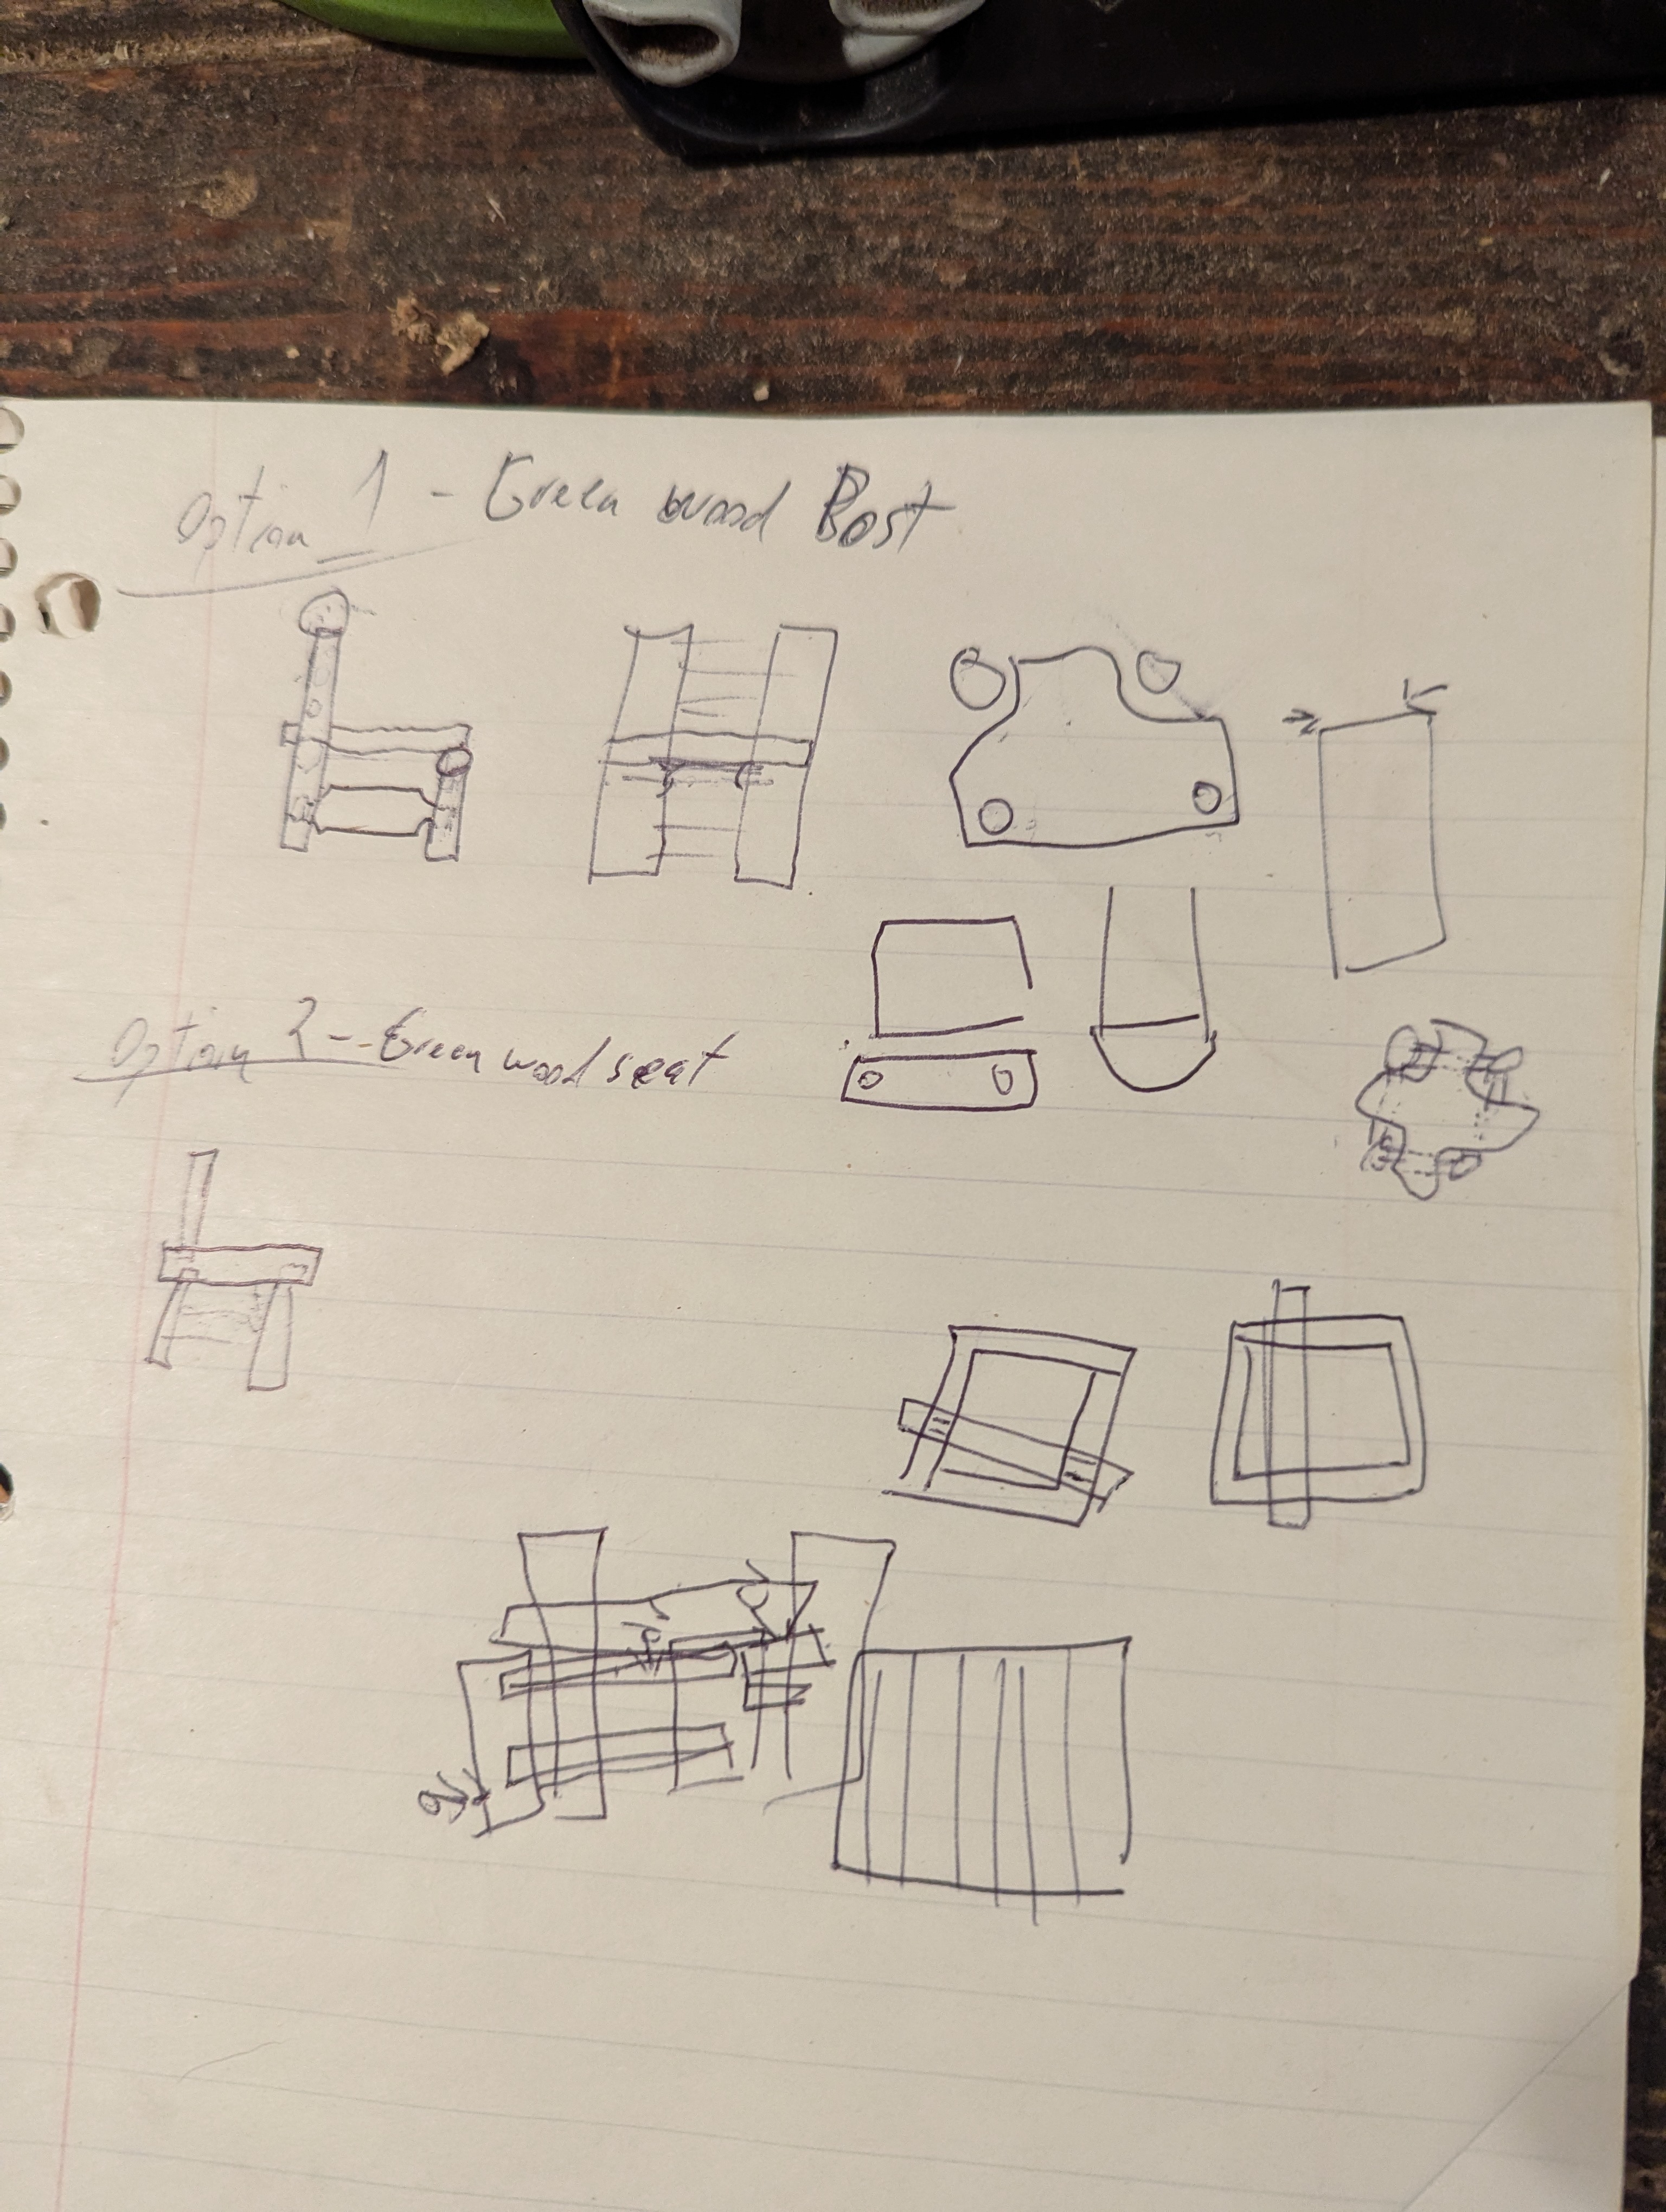 Option 1 - Green wood Post
Option 2 - Green wood seat